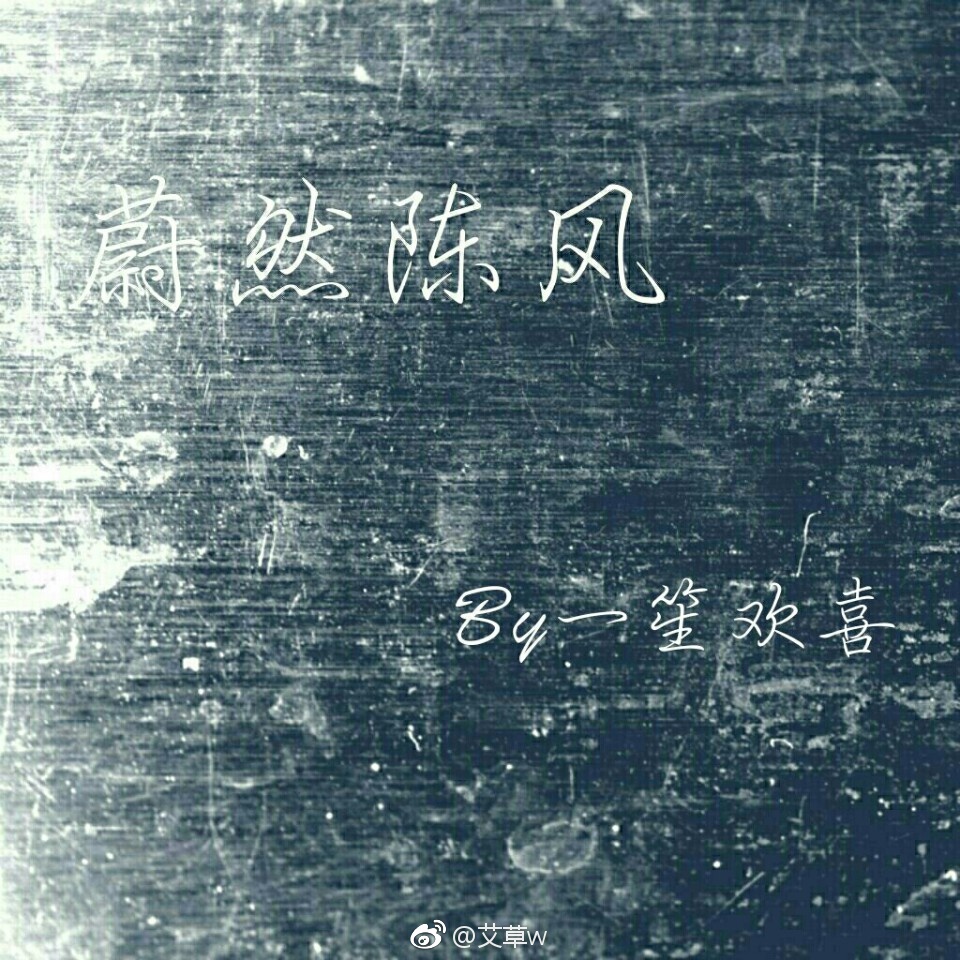 蔚然陈凤
By一笙欢喜
@艾草w